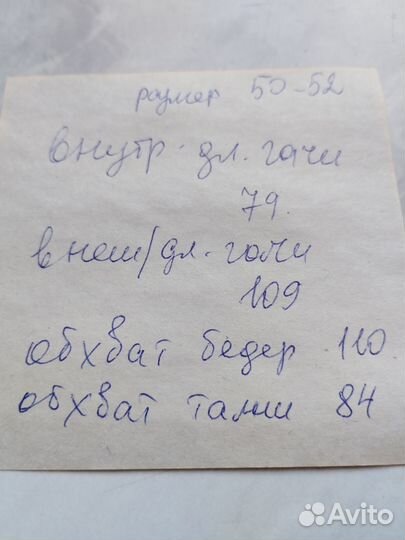 размер 50-52
внутр. дл. гачи
79.
внеш/дл. гачи
109
обхват бедер 110
обхват талии 84
Avito